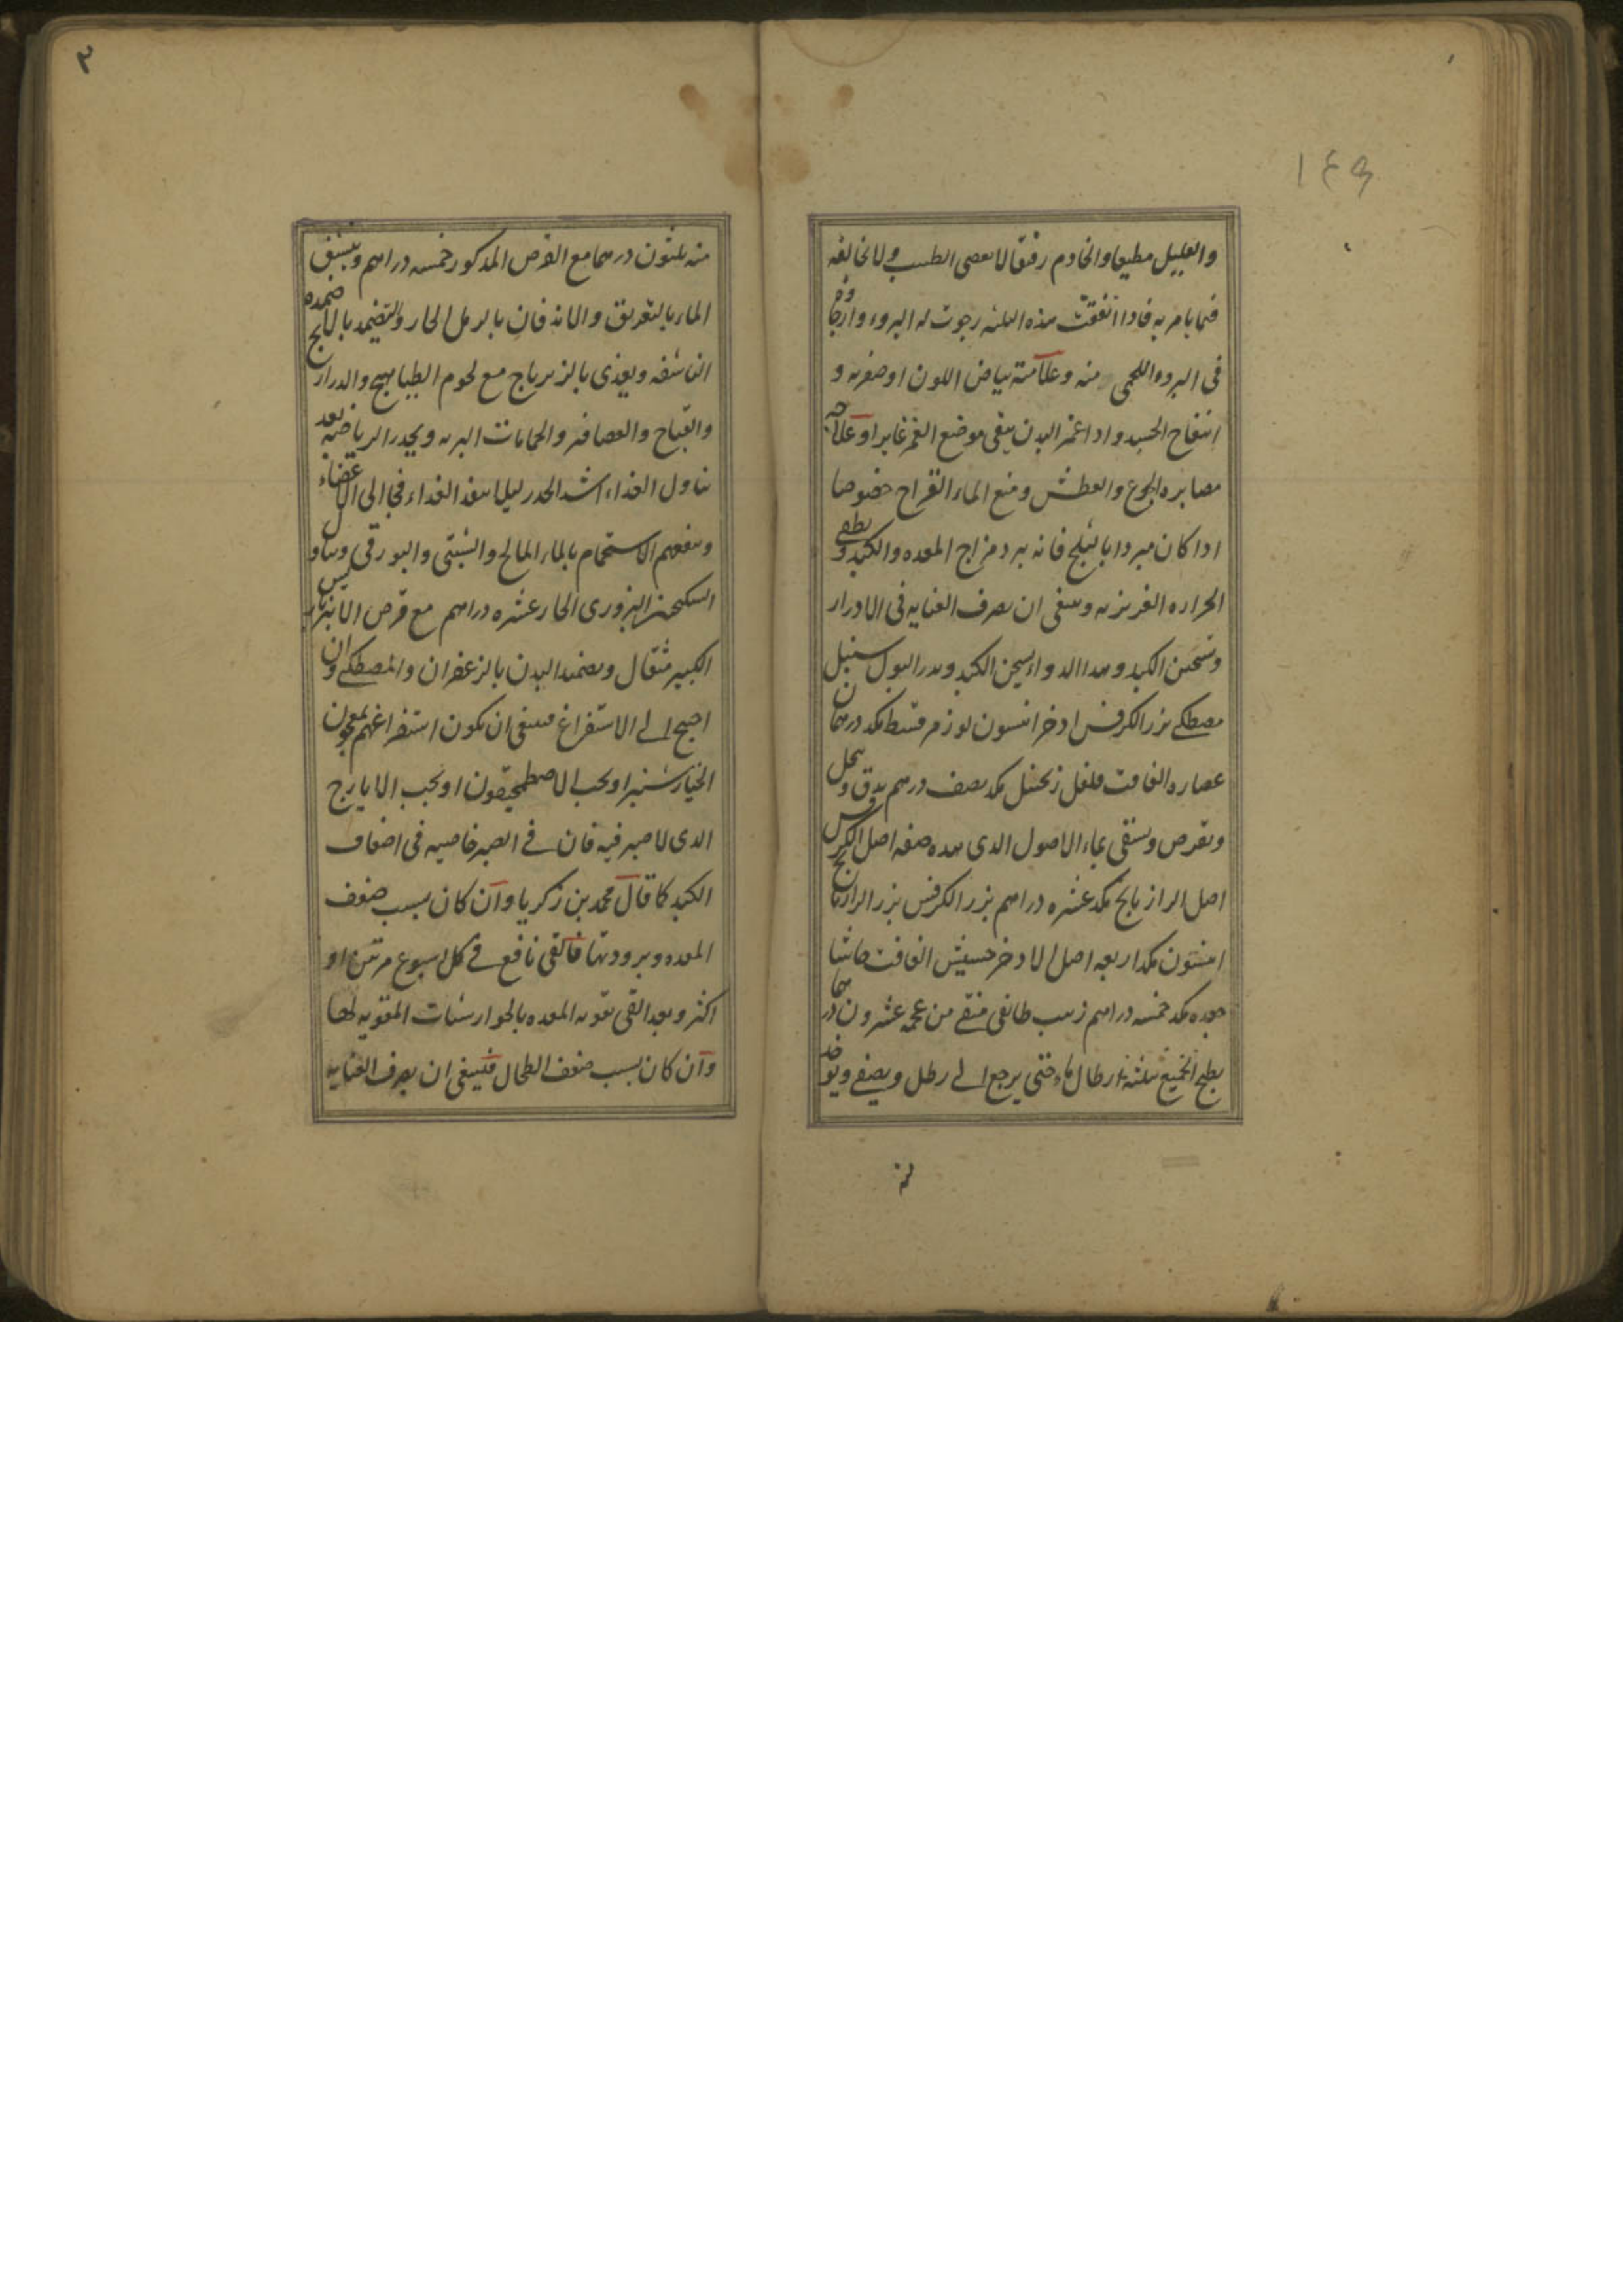 ١٤٩
والعليل مطيعا والخادم رفيقا لا يعصى الطبيب ولا يخالفه
فيما يامر به فاذا اتفقت هذه الثلثه رجوت له البروء وارجا
فى البروء اللحمى منه وعلامته بياض اللون او صفرته و
انتفاخ الجسد واذا غمز البدن يبقى موضع الغمز غايرا وعلاجه
مصابره الجوع والعطش ومنع الماء القراح خصوصا
اذا كان مبردا بالثلج فانه يبرد مزاج المعده والكبد ويطفى
الحراره الغريزيه وينبغى ان يصرف العنايه فى الادرار
وتسخين الكبد وهذا الدواء يسخن الكبد ويدر البول سنبل
مصطكى بزر الكرفس اذخر انيسون لوز مر قسط مكد درهمان
عصاره الغافت فلفل زنجبيل مكد نصف درهم يدق وينخل
ويقرص ويسقى بماء الاصول الذى هذه صفه اصل الكرفس
اصل الرازيانج مكد عشره دراهم بزر الكرفس بزر الرازيانج
انيسون مكد اربعه اصل الاذخر حشيش الغافت حاشا
جعده مكد خمسه دراهم زبيب طائفى منقى من عجمه عشرون درهما
يطبخ الجميع بثلثة ارطال ماء حتى يرجع الى رطل ويصفى ويوخذ
٣
منه ثلثون درهما مع القرص المذكور خمسه دراهم وينشف
الماء بالتعريق والاندفان بالرمل الحار والتضميد بالاضمده
الناشفه ويغذى بالزيرباج مع لحوم الطياهيج والدراريج
والقباج والعصافير والحمامات البريه ويحذر الرياضه بعد
تناول الغذاء اشد الحذر ليلا ينفذ الغذاء فجا الى الاعضاء
وينفعهم الاستحمام بالماء المالح والشبتى والبورقى وتناول
السكنجبين البزورى الحار عشره دراهم مع قرص الانبرباريس
الكبير مثقال ويضمد البدن بالزعفران والمصطكى وان
احتيج الى الاستفراغ فينبغى ان يكون استفراغهم بمعجون
الخيارشنبر او بحب الاصطمحيقون او بحب الايارج
الذى لا صبر فيه فان فى الصبر خاصيه فى اضعاف
الكبد كما قال محمد بن زكريا وان كان بسبب ضعف
المعده وبرودتها فالقى نافع فى كل اسبوع مرتين او
اكثر وبعد القى تقويه المعده بالجوارشنات المقويه لها
وان كان بسبب ضعف الطحال فينبغى ان يصرف العنايه